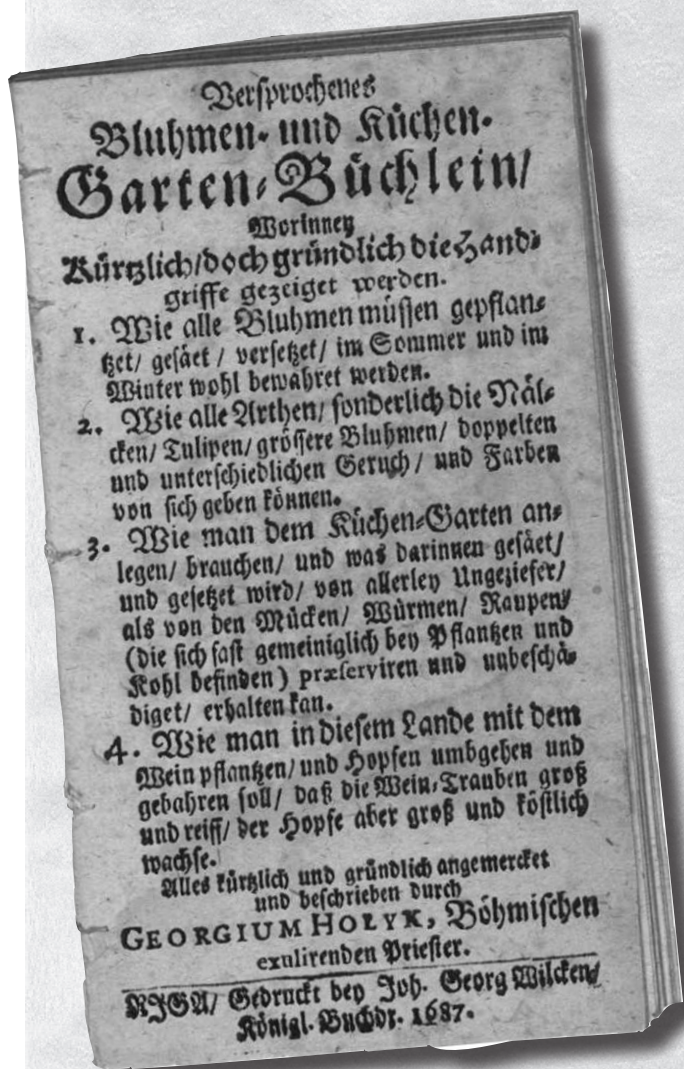 Versprochenes
Bluhmen- und Küchen-
Garten-Büchlein/
Worinnen
Kürtzlich/doch gründlich die Hand-
griffe gezeiget werden.
1. Wie alle Bluhmen müssen gepflan-
tzet/ gesäet / versetzet/ im Sommer und im
Winter wohl bewahret werden.
2. Wie alle Arthen/ sonderlich die Näl-
cken/ Tulipen/ grössere Bluhmen/ doppelten
und unterschiedlichen Geruch/ und Farben
von sich geben können.
3. Wie man dem Küchen-Garten an-
legen/ brauchen/ und was darinnen gesäet/
und gesetzet wird/ von allerley Ungeziefer/
als von den Mücken/ Würmen/ Raupen/
(die sich fast gemeiniglich bey Pflantzen und
Kohl befinden) præserviren und unbeschä-
diget/ erhalten kan.
4. Wie man in diesem Lande mit dem
Wein pflantzen/ und Hopfen umbgehen und
gebahren soll/ daß die Wein-Trauben groß
und reiff/ der Hopfe aber groß und köstlich
wachse.
Alles kürtzlich und gründlich angemercket
und beschrieben durch
GEORGIUM HOLYK, Böhmischen
exulirenden Priester.
RIGA/ Gedruckt bey Joh. Georg Wilcken/
Königl. Buchdr. 1687.